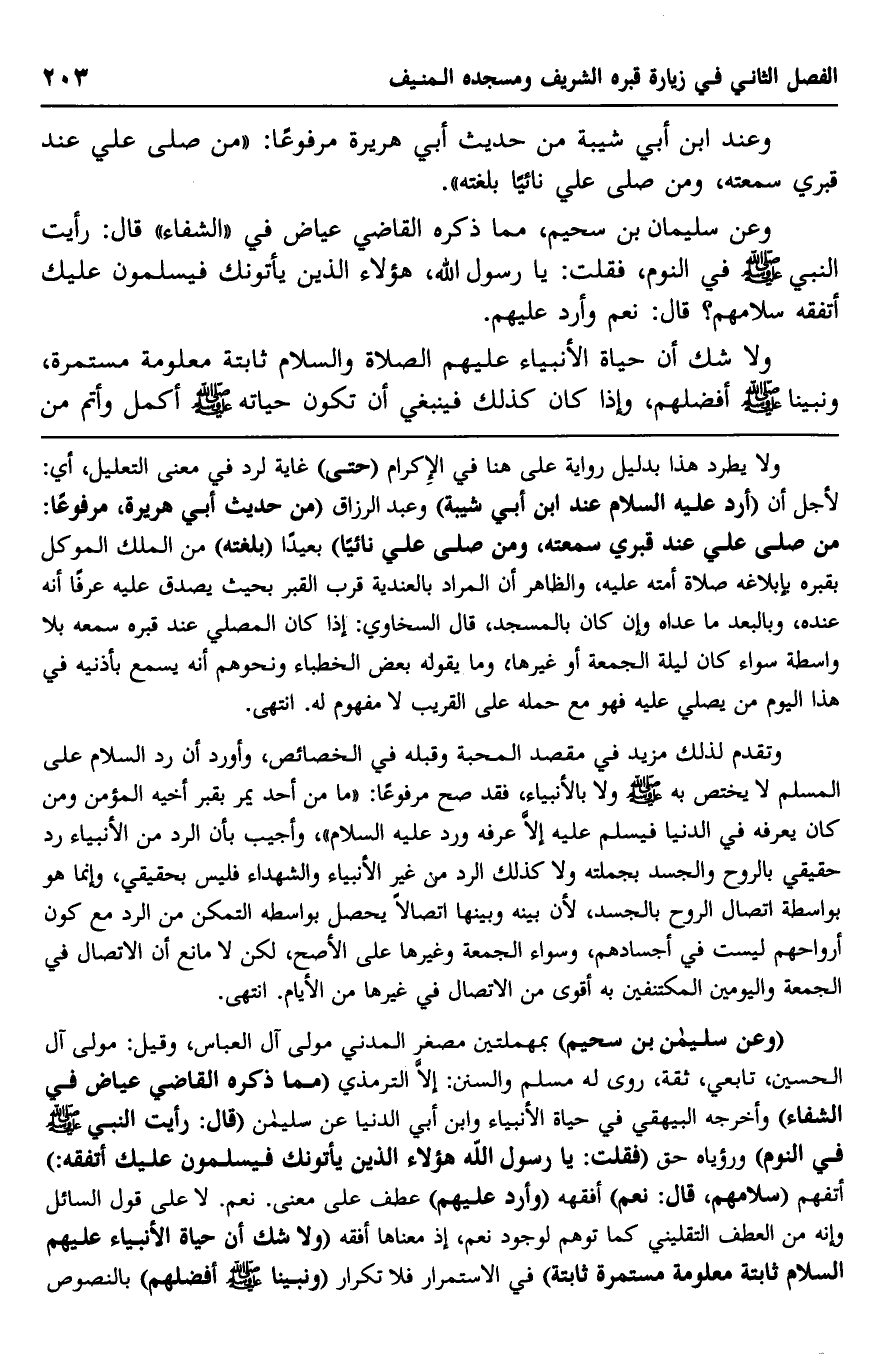 الفصل الثاني في زيارة قبره الشريف ومسجده المنيف ٢٠٣
وعند ابن أبي شيبة من حديث أبي هريرة مرفوعًا: «من صلى علي عند
قبري سمعته، ومن صلى علي نائيًا بلغته».
وعن سليمان بن سحيم، مما ذكره القاضي عياض في «الشفاء» قال: رأيت
النبي ﷺ في النوم، فقلت: يا رسول الله، هؤلاء الذين يأتونك فيسلمون عليك
أتفقه سلامهم؟ قال: نعم وأرد عليهم.
ولا شك أن حياة الأنبياء عليهم الصلاة والسلام ثابتة معلومة مستمرة،
ونبينا ﷺ أفضلهم، وإذا كان كذلك فينبغي أن تكون حياته ﷺ أكمل وأتم من
ولا يطرد هذا بدليل رواية على هنا في الإكرام (حتى) غاية لرد في معنى التعليل، أي:
لأجل أن (أرد عليه السلام عند ابن أبي شيبة) وعبد الرزاق (من حديث أبي هريرة، مرفوعًا:
من صلى علي عند قبري سمعته، ومن صلى علي نائيًا) بعيدًا (بلغته) من الملك الموكل
بقبره بإبلاغه صلاة أمته عليه، والظاهر أن المراد بالعندية قرب القبر بحيث يصدق عليه عرفًا أنه
عنده، وبالبعد ما عداه وإن كان بالمسجد، قال السخاوي: إذا كان المصلي عند قبره سمعه بلا
واسطة سواء كان ليلة الجمعة أو غيرها، وما يقوله بعض الخطباء ونحوهم أنه يسمع بأذنيه في
هذا اليوم من يصلي عليه فهو مع حمله على القريب لا مفهوم له. انتهى.
وتقدم لذلك مزيد في مقصد المحبة وقبله في الخصائص، وأورد أن رد السلام على
المسلم لا يختص به ﷺ ولا بالأنبياء، فقد صح مرفوعًا: «ما من أحد يمر بقبر أخيه المؤمن ومن
كان يعرفه في الدنيا فيسلم عليه إلاَّ عرفه ورد عليه السلام»، وأجيب بأن الرد من الأنبياء رد
حقيقي بالروح والجسد بجملته ولا كذلك الرد من غير الأنبياء والشهداء فليس بحقيقي، وإنما هو
بواسطة اتصال الروح بالجسد، لأن بينه وبينها اتصالاً يحصل بواسطه التمكن من الرد مع كون
أرواحهم ليست في أجسادهم، وسواء الجمعة وغيرها على الأصح، لكن لا مانع أن الاتصال في
الجمعة واليومين المكتنفين به أقوى من الاتصال في غيرها من الأيام. انتهى.
(وعن سليمٰن بن سحيم) بمهملتين مصغر المدني مولى آل العباس، وقيل: مولى آل
الحسين، تابعي، ثقة، روى له مسلم والسنن: إلاَّ الترمذي (مما ذكره القاضي عياض في
الشفاء) وأخرجه البيهقي في حياة الأنبياء وابن أبي الدنيا عن سليمٰن (قال: رأيت النبي ﷺ
في النوم) ورؤياه حق (فقلت: يا رسول اللّه هؤلاء الذين يأتونك فيسلمون عليك أتفقه:)
أتفهم (سلامهم، قال: نعم) أفقهه (وأرد عليهم) عطف على معنى. نعم. لا على قول السائل
وإنه من العطف التقليني كما توهم لوجود نعم، إذ معناها أفقه (ولا شك أن حياة الأنبياء عليهم
السلام ثابتة معلومة مستمرة ثابتة) في الاستمرار فلا تكرار (ونبينا ﷺ أفضلهم) بالنصوص